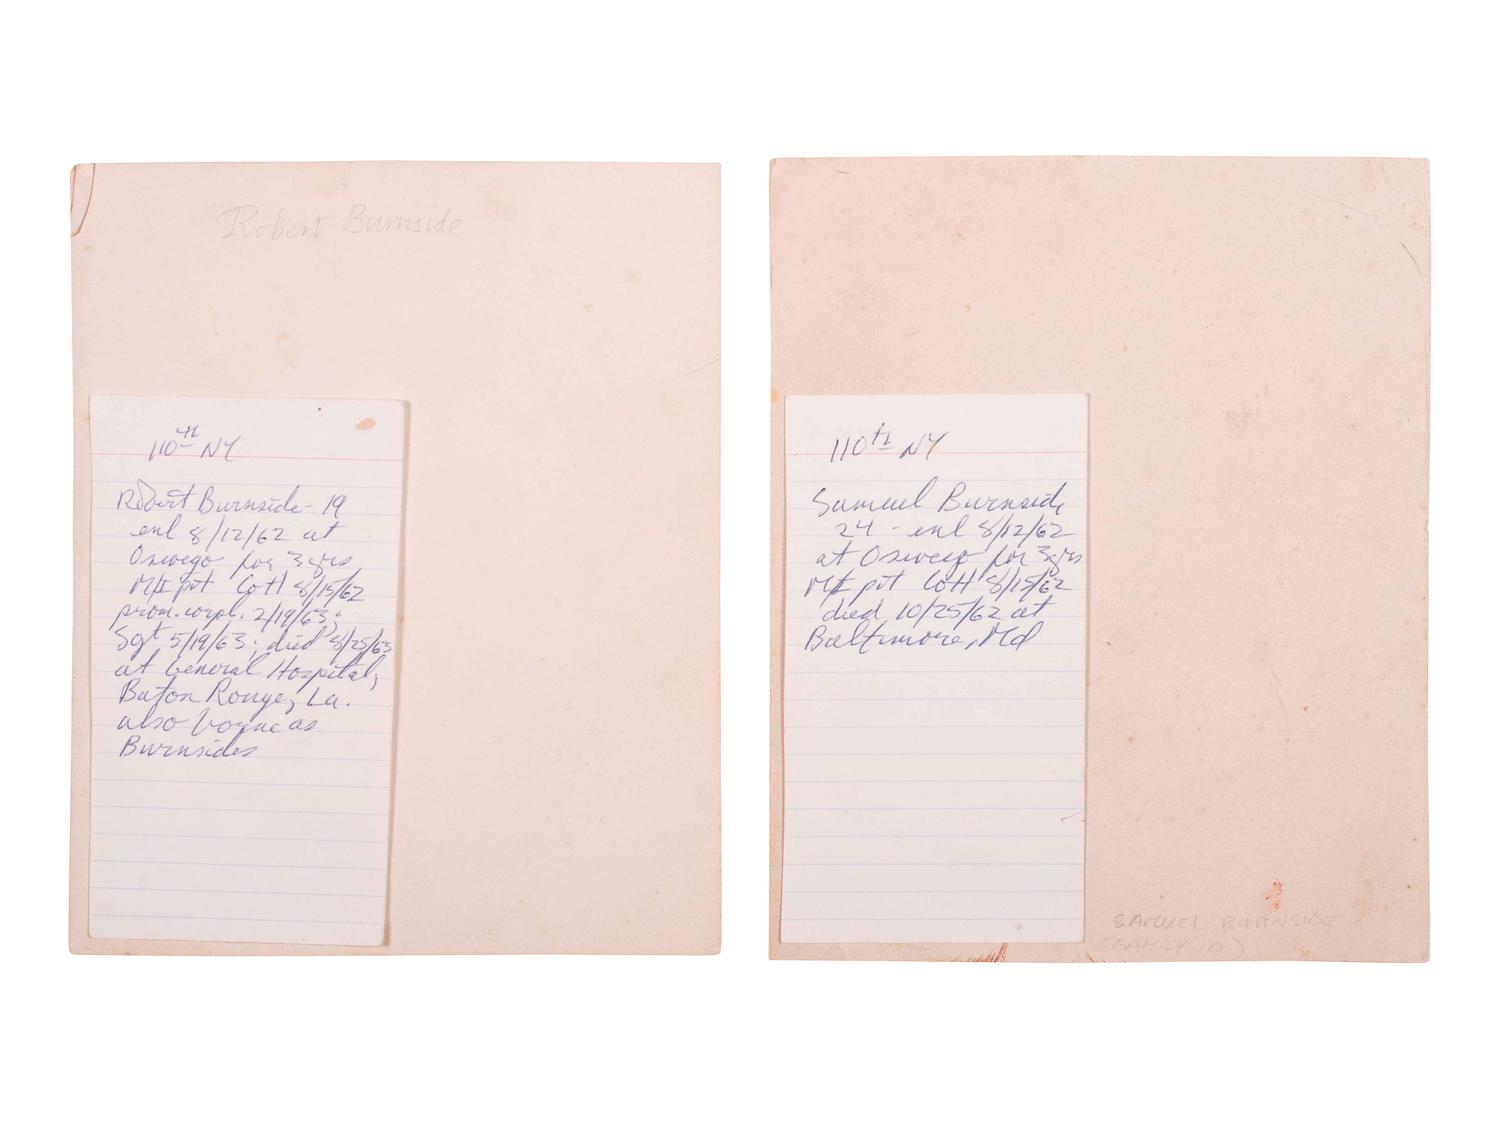 Robert Burnside
110th NY
Robert Burnside - 19
enl 8/12/62 at
Oswego for 3 yrs
MI pvt Co H 8/15/62
prom. corpl. 2/19/63;
Sgt 5/19/63; died 8/25/63
at General Hospital,
Baton Rouge, La.
also borne as
Burnsides
110th NY
Samuel Burnside
24 - enl 8/12/62
at Oswego for 3 yrs
MI pvt Co H 8/15/62
died 10/25/62 at
Baltimore, Md
SAMUEL BURNSIDE
(FAMILY ID)